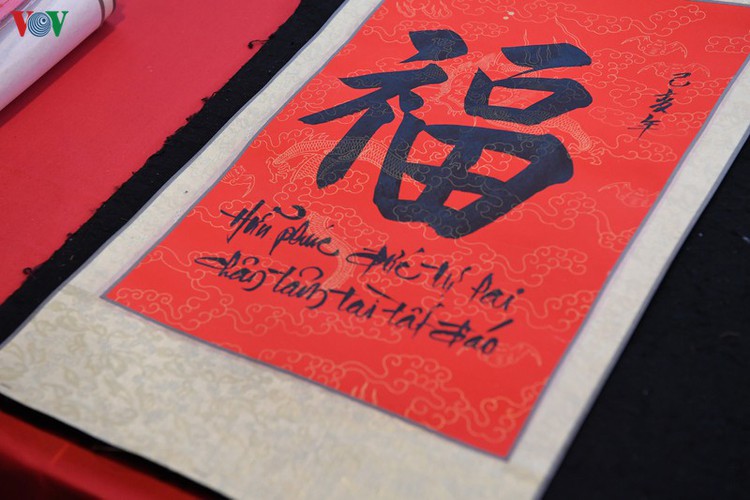 VOV
福
己亥年
Hữu phúc đức tự lai
chân tâm tài tất đáo